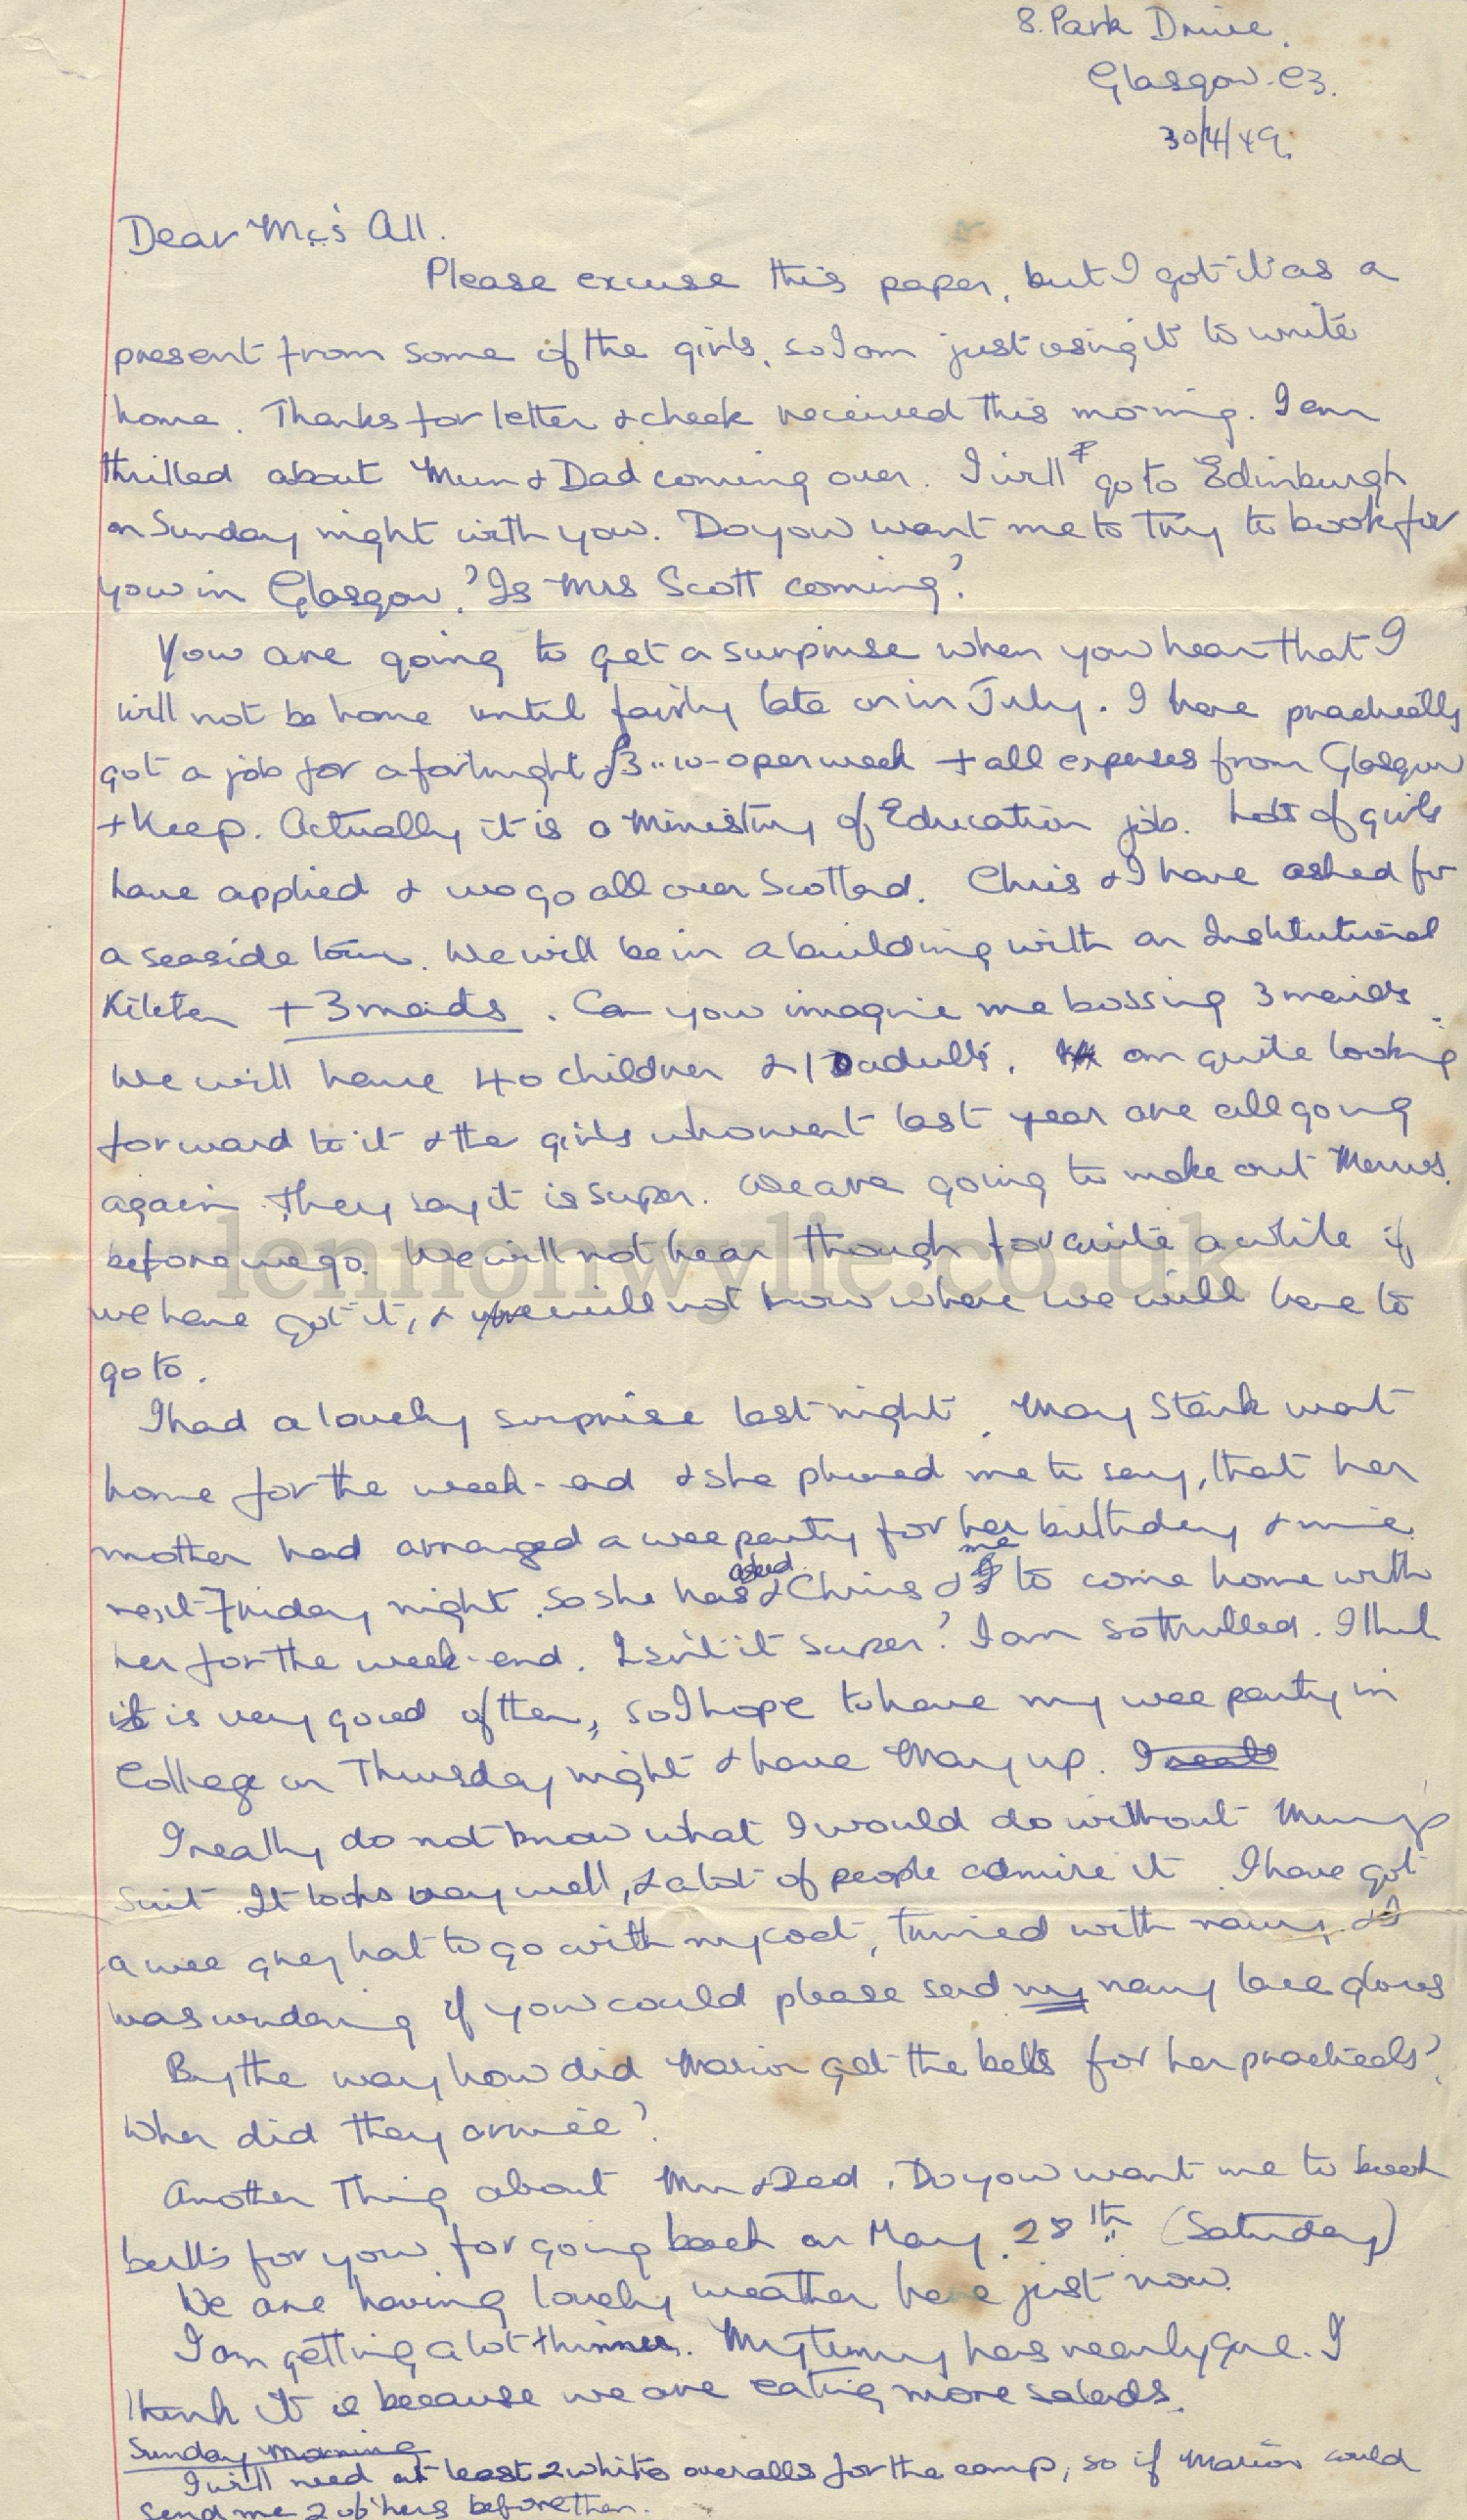 8. Park Drive.
Glasgow. C3.
30/4/49.
Dear Mc's All.
Please excuse this paper, but I got it as a
present from some of the girls, so I am just using it to write
home. Thanks for letter & check received this morning. I am
thrilled about Mum & Dad coming over. I will go to Edinburgh
on Sunday night with you. Do you want me to try to book for
you in Glasgow? Is Mrs Scott coming?
You are going to get a surprise when you hear that I
will not be home until fairly late on in July. I have practically
got a job for a fortnight £3..10-0 per week + all expenses from Glasgow
+ Keep. Actually it is a Ministry of Education job. Lots of girls
have applied & we go all over Scotland. Chris & I have asked for
a seaside town. We will be in a building with an Institutional
Kitchen + 3 maids. Can you imagine me bossing 3 maids.
We will have 40 children & 10 adults. am quite looking
forward to it & the girls who went last year are all going
again. They say it is super. We are going to make out Menus.
before we go. We will not hear though for quite a while if
we have got it, & we will not know where we will have to
go to.
I had a lovely surprise last night. May Stark went
home for the week-end & she phoned me to say, that her
mother had arranged a wee party for her birthday & mine.
next Friday night. So she has asked Chris & me to come home with
her for the week-end. Isn't it super? I am so thrilled. I think
it is very good of them, so I hope to have my wee party in
College on Thursday night & have May up. I
I really do not know what I would do without Mum's
suit. It looks very well, & a lot of people admire it. I have got
a wee grey hat to go with my coat, trimed with navy. & I
was wondering if you could please send my navy lace gloves
By the way how did Marion get the belts for her practicals?
When did they arrive?
Another Thing about Mum & Dad. Do you want me to book
berths for you for going back on May 28th (Saturday)
We are having lovely weather here just now.
I am getting a lot thinner. My tummy has nearly gone. I
think it is because we are eating more salads.
Sunday Morning
I will need at least 2 white overalls for the camp, so if Marion could
send me 2 of hers before then.
lennonwylie.co.uk